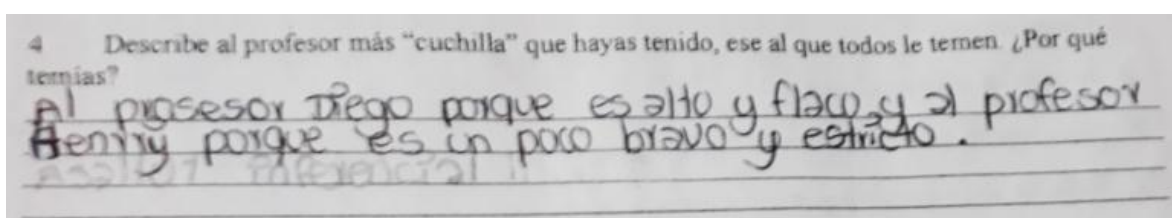 4 Describe al profesor más “cuchilla” que hayas tenido, ese al que todos le temen. ¿Por qué
temías?
Al prosesor Diego porque es alto y flaco, y al profesor
Henrry porque es un poco bravo y estricto.